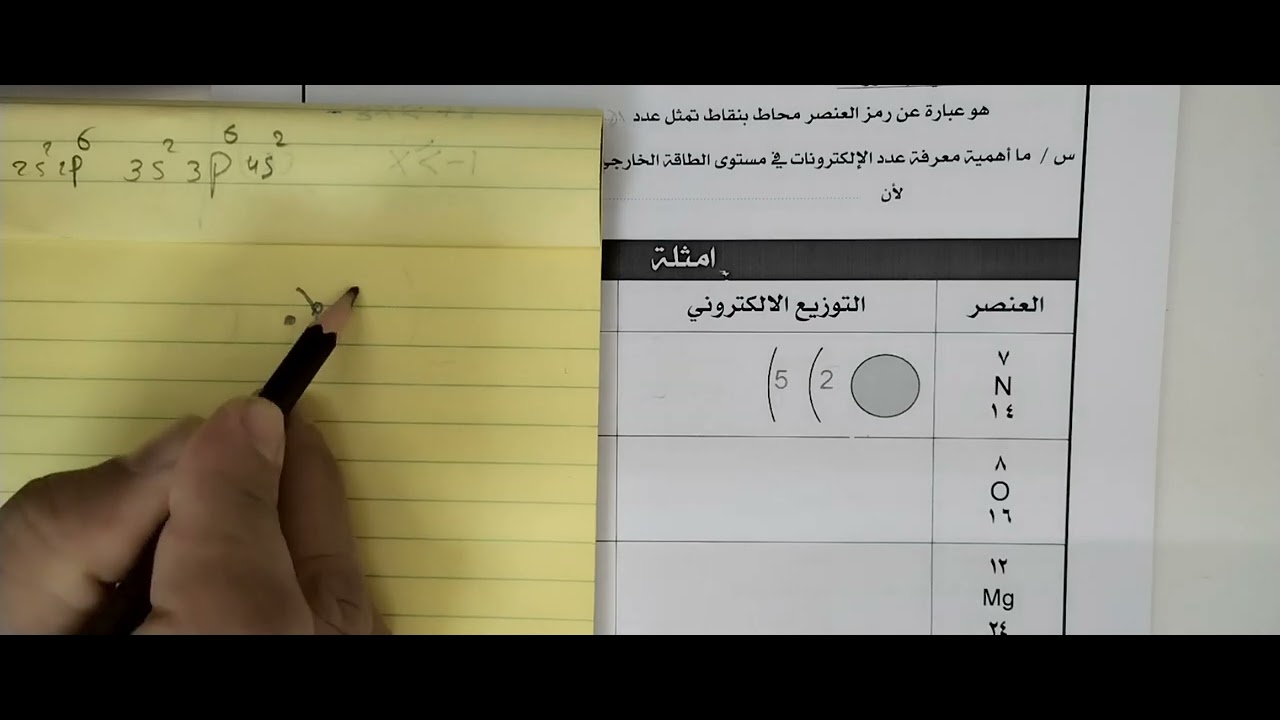 2s² 2p⁶ 3s² 3p⁶ 4s²
x < -1
هو عبارة عن رمز العنصر محاط بنقاط تمثل عدد
س / ما أهمية معرفة عدد الإلكترونات في مستوى الطاقة الخارجي
لأن
امثلة
العنصر التوزيع الالكتروني
٧
N 2 5
١٤
٨
O
١٦
١٢
Mg
٢٤